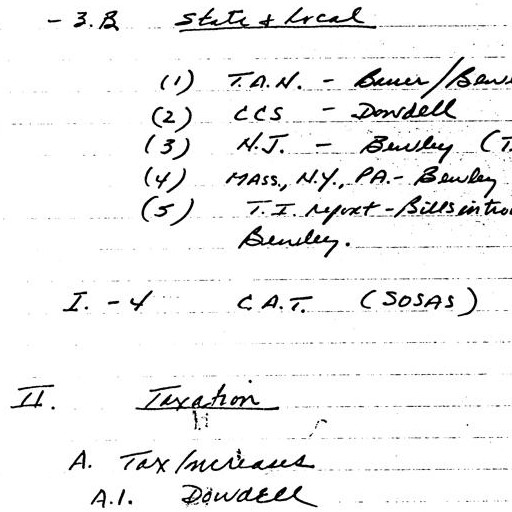 - 3.B State & Local
(1) T.A.N. - Bauer/
(2) CCS - Dowdell
(3) N.J. - Bewley (T
(4) MASS., N.Y., PA. - Bewley
(5) T.I. report - Bills
Bewley.
I. - 4 C.A.T. (SOSAS)
II. Taxation
A. Tax Increases
A.1. Dowdell